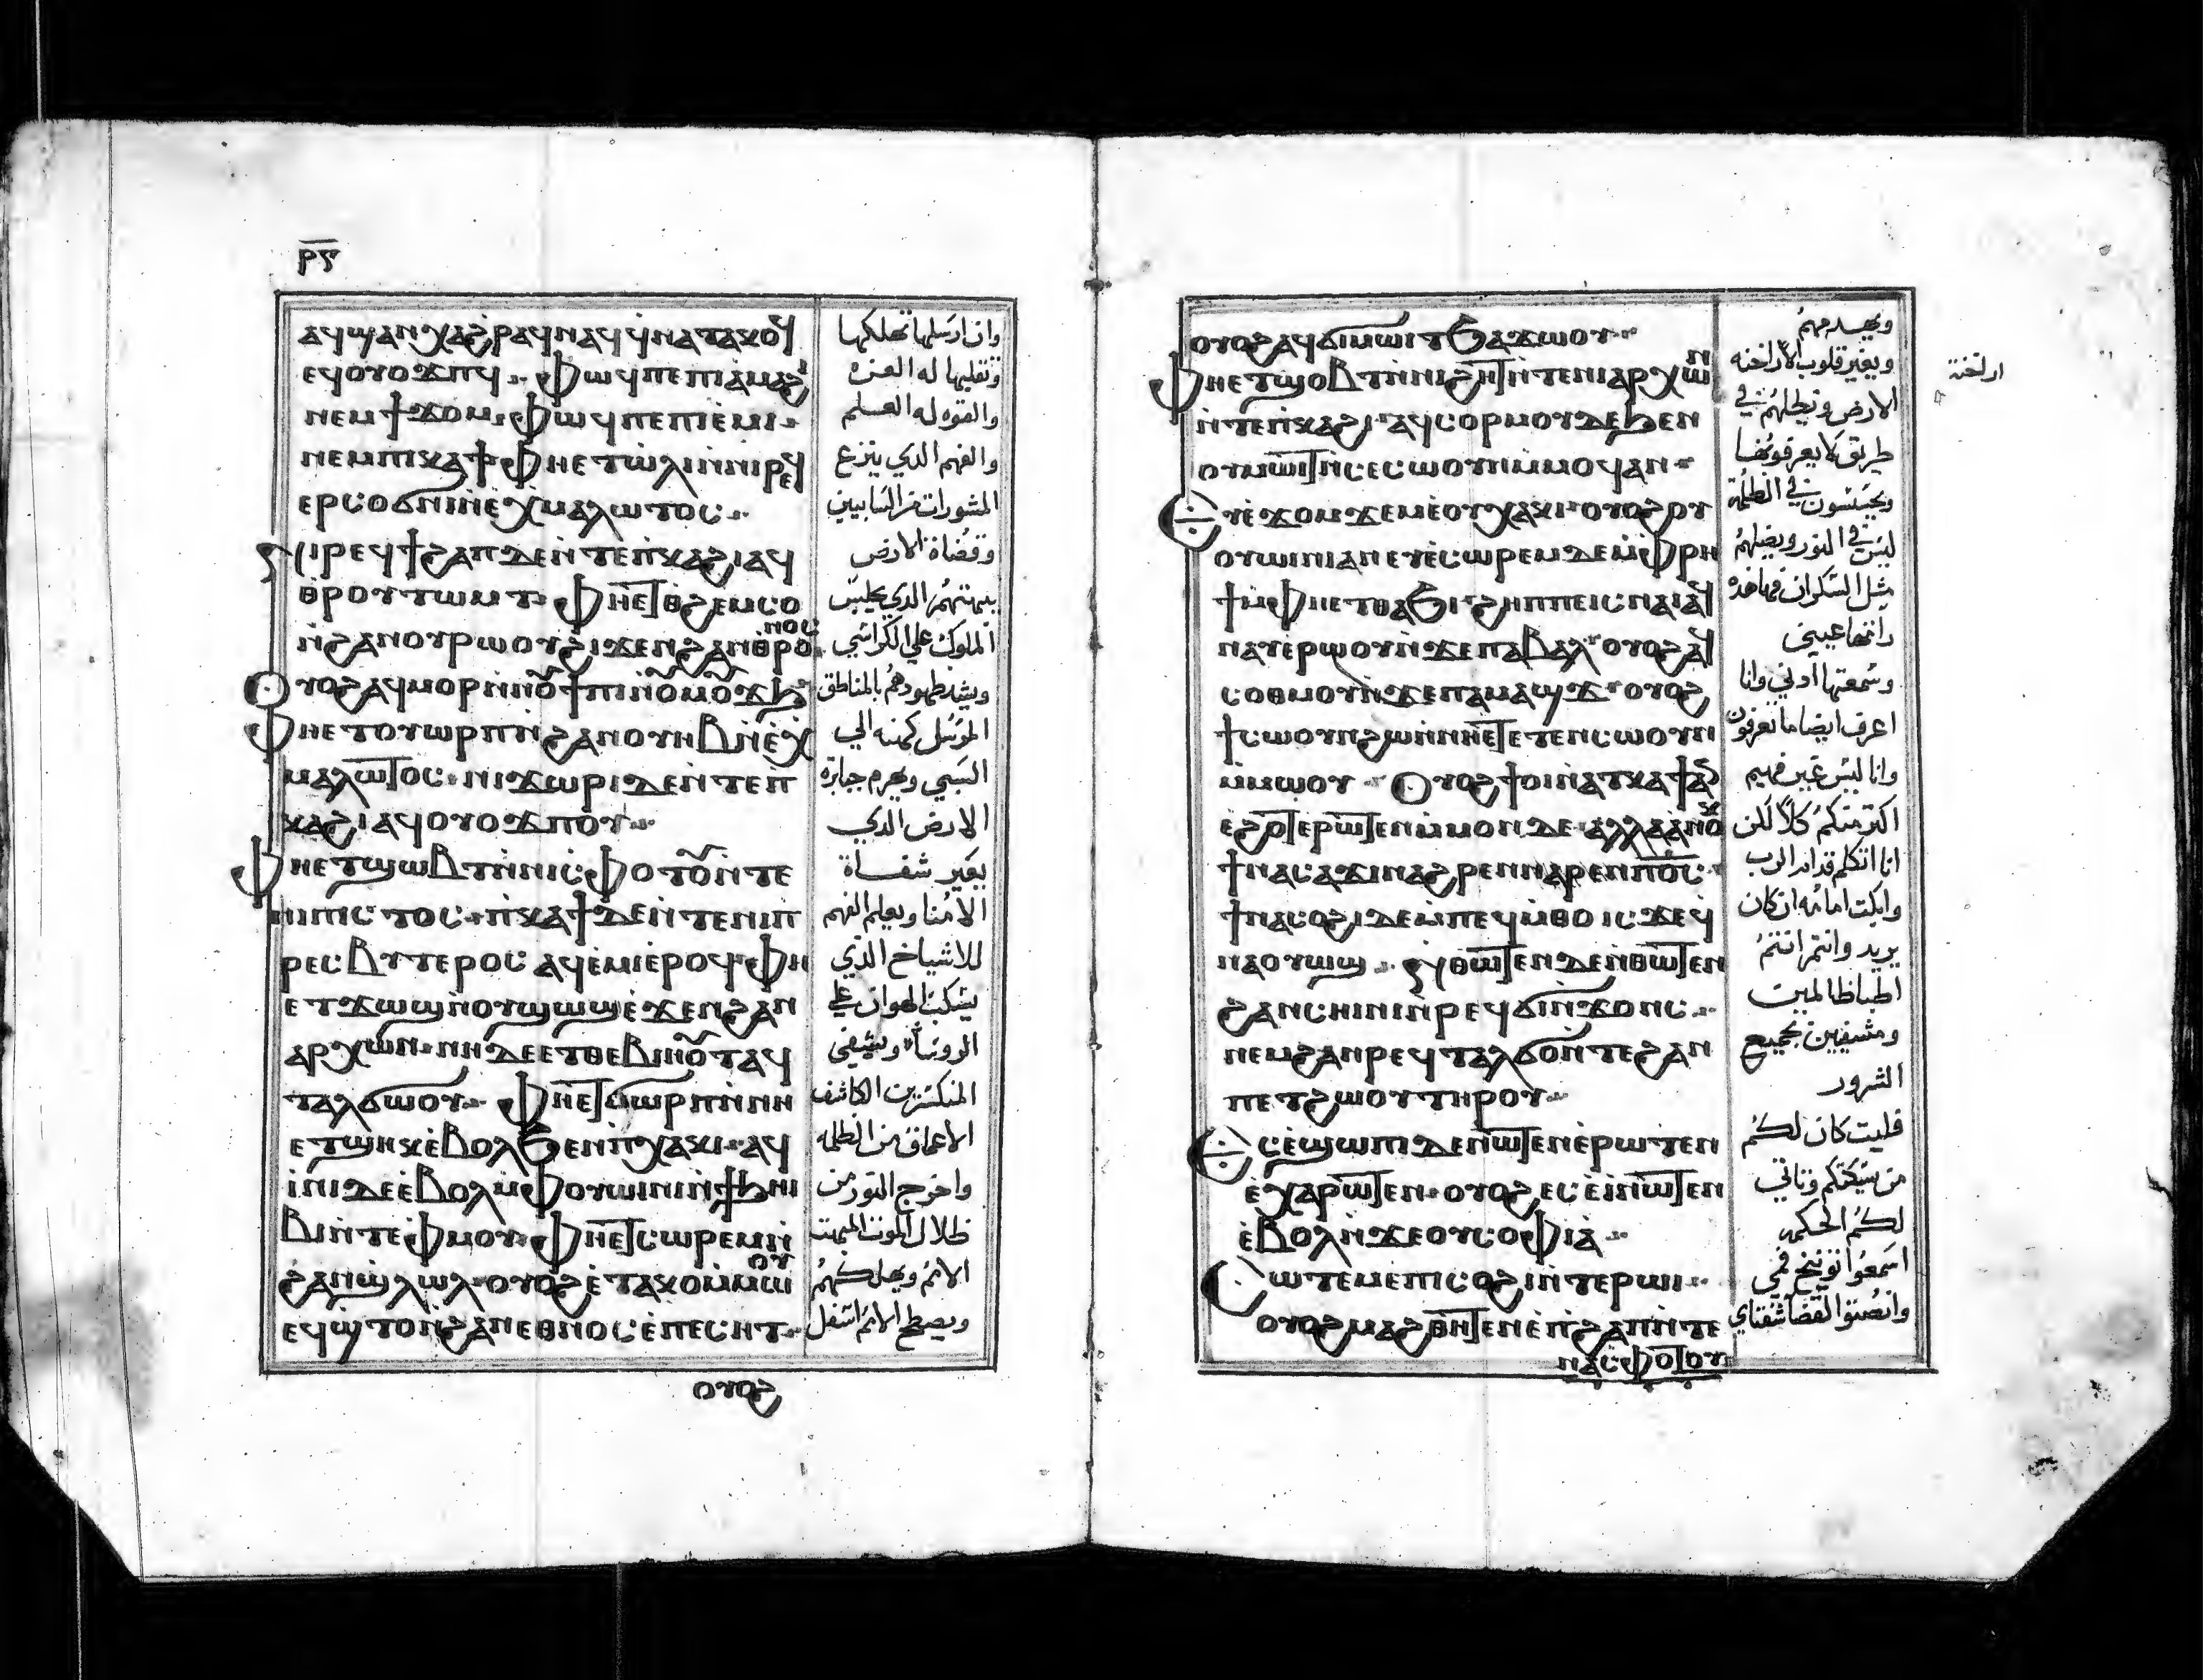 ⲣⲋ
ⲁϥϣⲁⲛⲭⲁϩⲣⲁϥ ⲛⲁϥ ϥ̀ⲛⲁⲧⲁⲕⲟϥ
ⲉϥⲟⲩⲟϫⲡϥ. ⲫⲱϥ ⲡⲉ ⲡⲓⲁ̀ⲙⲁϩⲓ
ⲛⲉⲙ ϯϫⲟⲙ. ⲫⲱϥ ⲡⲉ ⲡⲓⲉ̀ⲙⲓ.
ⲛⲉⲙ ⲡⲓⲕⲁϯ ⲫⲏ ⲉⲧⲱⲗⲓ ⲛ̀ⲛⲓⲣⲉϥ
ⲉⲣⲥⲟϭⲛⲓ ⲛ̀ⲉ̀ⲭⲙⲁⲗⲱⲧⲟⲥ.
ⲛⲓⲣⲉϥϯϩⲁⲡ ⲇⲉ ⲛ̀ⲧⲉ ⲡ̀ⲕⲁϩⲓ ⲁϥ
ⲑⲣⲟⲩⲧⲱⲙⲧ. ⲫⲏ ⲉⲧⲑϩⲉⲙⲥⲟ
ⲛ̀ϩⲁⲛⲟⲩⲣⲱⲟⲩ ϩⲓϫⲉⲛ ϩⲁⲛⲑⲣⲟⲛⲟⲥ
ⲟⲩⲟϩ ⲁϥⲙⲟⲣ ⲛ̀ⲛⲟ̄ϯⲡⲓ ⲛ̀ⲟ̄ⲙⲟ̄ϫϧ
ⲫⲏ ⲉⲧⲟⲩⲱⲣⲡ ⲛ̀ϩⲁⲛⲟⲩⲏⲃ ⲛ̀ⲉ̀ⲭ
ⲙⲁⲗⲱⲧⲟⲥ. ⲛⲓϫⲱⲣⲓ ⲇⲉ ⲛ̀ⲧⲉ ⲡ̀
ⲕⲁϩⲓ ⲁϥⲟⲩⲟϫⲡⲟⲩ.
ⲫⲏ ⲉⲧϣⲱⲃⲧ ⲛ̀ⲛⲓⲥⲫⲟⲧⲟ̄ ⲛ̀ⲧⲉ
ⲛⲓⲡⲓⲥⲧⲟⲥ. ⲡ̀ⲕⲁϯ ⲇⲉ ⲛ̀ⲧⲉ ⲛⲓⲡ
ⲣⲉⲥⲃⲩⲧⲉⲣⲟⲥ ⲁϥⲉ̀ⲙⲓ ⲉ̀ⲣⲟϥ ⲫⲏ
ⲉⲧϫⲱϣ ⲛ̀ⲟⲩϣⲱϣ ⲉ̀ϫⲉⲛ ϩⲁⲛ
ⲁⲣⲭⲱⲛ. ⲛⲏ ⲇⲉ ⲉⲧⲑⲉⲃⲓⲏⲟ̄ⲧ ⲁϥ
ⲧⲁⲗϭⲱⲟⲩ. ⲫⲏ ⲉⲧϭⲱⲣⲡ ⲛ̀ⲛⲏ
ⲉⲧϣⲏⲕ ⲉ̀ⲃⲟⲗϧⲉⲛ ⲡ̀ⲭⲁⲕⲓ. ⲁϥ
ⲓ̀ⲛⲓ ⲇⲉ ⲉ̀ⲃⲟⲗ ⲙ̀ⲫⲟⲩⲱⲓⲛⲓ ⲛ̀ϯϧⲏⲓ
ⲃⲓ ⲛ̀ⲧⲉ ⲫⲙⲟⲩ. ⲫⲏ ⲉⲧⲥⲱⲣⲉⲙ ⲛ̀
ϩⲁⲛϣ̀ⲗⲱⲗ. ⲟⲩⲟϩ ⲉ̀ⲧⲁⲕⲟ ⲙ̀ⲙⲱⲟⲩ
ⲉϥϣ̀ⲧⲟ ⲛ̀ϩⲁⲛⲉⲑⲛⲟⲥ ⲉ̀ⲡⲉⲥⲏⲧ.
ⲟⲩⲟϩ
وان ارسلها تهلكها
وتقلبها له العزه
والقوه له العلم
والفهم الذي ينزع
المشورات من السابيين
وقضاة الارض
يبهتهم الذي يجلس
الملوك علي الكراسي
ويشد ظهورهم بالمناطق
المرسل كهنه الي
السبي ويهرم جبابرة
الارض الذي
يغير شفاة
الامنا ويعلم الفهم
للاشياخ الذي
يسكب الهوان علي
الروسا ويشفي
المنكسرين الكاشف
الاعماق من الظلمه
واخرج النور من
ظلال الموت المهت
الامم ويهلكهم
ويصطح الامم اسفل
ⲟⲩⲟϩ ⲁϥϭⲓⲙⲱⲓⲧ ϧⲁϫⲱⲟⲩ.
ⲫⲏ ⲉⲧϣⲟⲃⲧ ⲛ̀ⲛⲓϩⲏⲧ ⲛ̀ⲧⲉ ⲛⲓⲁⲣⲭⲱⲛ
ⲛ̀ⲧⲉ ⲡ̀ⲕⲁϩⲓ. ⲁϥⲥⲟⲣⲙⲟⲩ ⲇⲉ ϧⲉⲛ
ⲟⲩⲙⲱⲓⲧ ⲛ̀ⲥⲉⲥⲱⲟⲩⲛ ⲙ̀ⲙⲟϥ ⲁⲛ.
ⲉⲩⲉ̀ϫⲟⲙϫⲉⲙ ⲉ̀ⲟⲩⲭⲁⲕⲓ. ⲟⲩⲟϩ ⲟⲩ
ⲟⲩⲱⲓⲛⲓ ⲁⲛ ⲉⲩⲉ̀ⲥⲱⲣⲉⲙ ⲇⲉ ⲙ̀ⲫⲣⲏ
ϯ ⲙ̀ⲫⲏ ⲉⲧⲑⲁϧⲓ. ϩⲏⲡⲡⲉ ⲓⲥ ⲛⲁⲓ ⲁϥ
ⲛⲁⲩ ⲉ̀ⲣⲱⲟⲩ ⲛ̀ϫⲉ ⲡⲁⲃⲁⲗ. ⲟⲩⲟϩ ⲁϥ
ⲥⲟⲑⲙⲟⲩ ⲛ̀ϫⲉ ⲡⲁⲙⲁϣϫ. ⲟⲩⲟϩ
ϯⲥⲱⲟⲩⲛ ϩⲱ ⲛ̀ⲛⲏ ⲉⲧⲉⲧⲉⲛⲥⲱⲟⲩⲛ
ⲙ̀ⲙⲱⲟⲩ. ⲟⲩⲟϩ ϯⲟⲓ ⲛ̀ⲁⲧⲕⲁϯ ⲁⲛ
ⲉϩⲟⲧⲉⲣⲱⲧⲉⲛ ⲙ̀ⲙⲟⲛ ⲇⲉ ⲁⲗⲗⲁ ⲁ̀ⲛⲟⲕ
ϯⲛⲁⲥⲁϫⲓ ⲛⲁϩⲣⲉⲛ ⲛⲁⲣⲉⲛ ⲡⲟ̅ⲥ̅.
ϯⲛⲁⲥⲟϩⲓ ⲇⲉ ⲙ̀ⲡⲉϥⲙ̀ⲑⲟ ⲓⲥϫⲉ ϥ
ⲛⲁⲟⲩⲱϣ. ⲛ̀ⲑⲱⲧⲉⲛ ⲇⲉ ⲛ̀ⲑⲱⲧⲉⲛ
ϩⲁⲛⲥⲏⲓⲛⲓ ⲛ̀ⲣⲉϥϭⲓⲛ̀ϫⲟⲛⲥ.
ⲛⲉⲙ ϩⲁⲛⲣⲉϥⲧⲁⲗϭⲟ ⲛ̀ⲧⲉ ϩⲁⲛ
ⲡⲉⲧϩⲱⲟⲩ ⲧⲏⲣⲟⲩ.
ⲉⲥⲉ̀ϣⲱⲡⲓ ⲇⲉ ⲛⲱⲧⲉⲛ ⲉ̀ⲣⲱⲧⲉⲛ
ⲉ̀ⲭⲁⲣⲱⲧⲉⲛ. ⲟⲩⲟϩ ⲉⲥⲉ̀ⲓ̀ ⲛⲱⲧⲉⲛ
ⲉ̀ⲃⲟⲗ ⲛ̀ϫⲉ ⲟⲩⲥⲟⲫⲓⲁ̀.
ⲥⲱⲧⲉⲙ ⲉ̀ⲡⲥⲟϩⲓ ⲛ̀ⲧⲉ ⲣⲱⲓ.
ⲟⲩⲟϩ ⲙⲁϩⲑⲏⲧⲉⲛ ⲉ̀ⲡ̀ϩⲁⲡ ⲛ̀ⲧⲉ
ⲛⲁⲥⲫⲟⲧⲟⲩ
ويغير قلوب الاراخنه
الارض وتطلهم في
طريق لا يعرفونها
ويجسسون في الظلمة
ليس في النور ويضلهم
مثل السكران فها هذه
راتها عيني
وسمعتها ادني وانا
اعرف ايضا ما تعرفون
وانا ليس غير فهيم
اكثر منكم كلا لكن
انا اتكلم قدام الرب
وابكت امامه ان كان
يريد وانتم انتم
اطبا ظالمين
ومشفيين بجميع
الشرور
فليت كان لكم
من سكتكم وتاتي
لكم الحكمه
اسمعوا توبيخ فمي
وانصتوا لقضا شفتاي
اراخنة